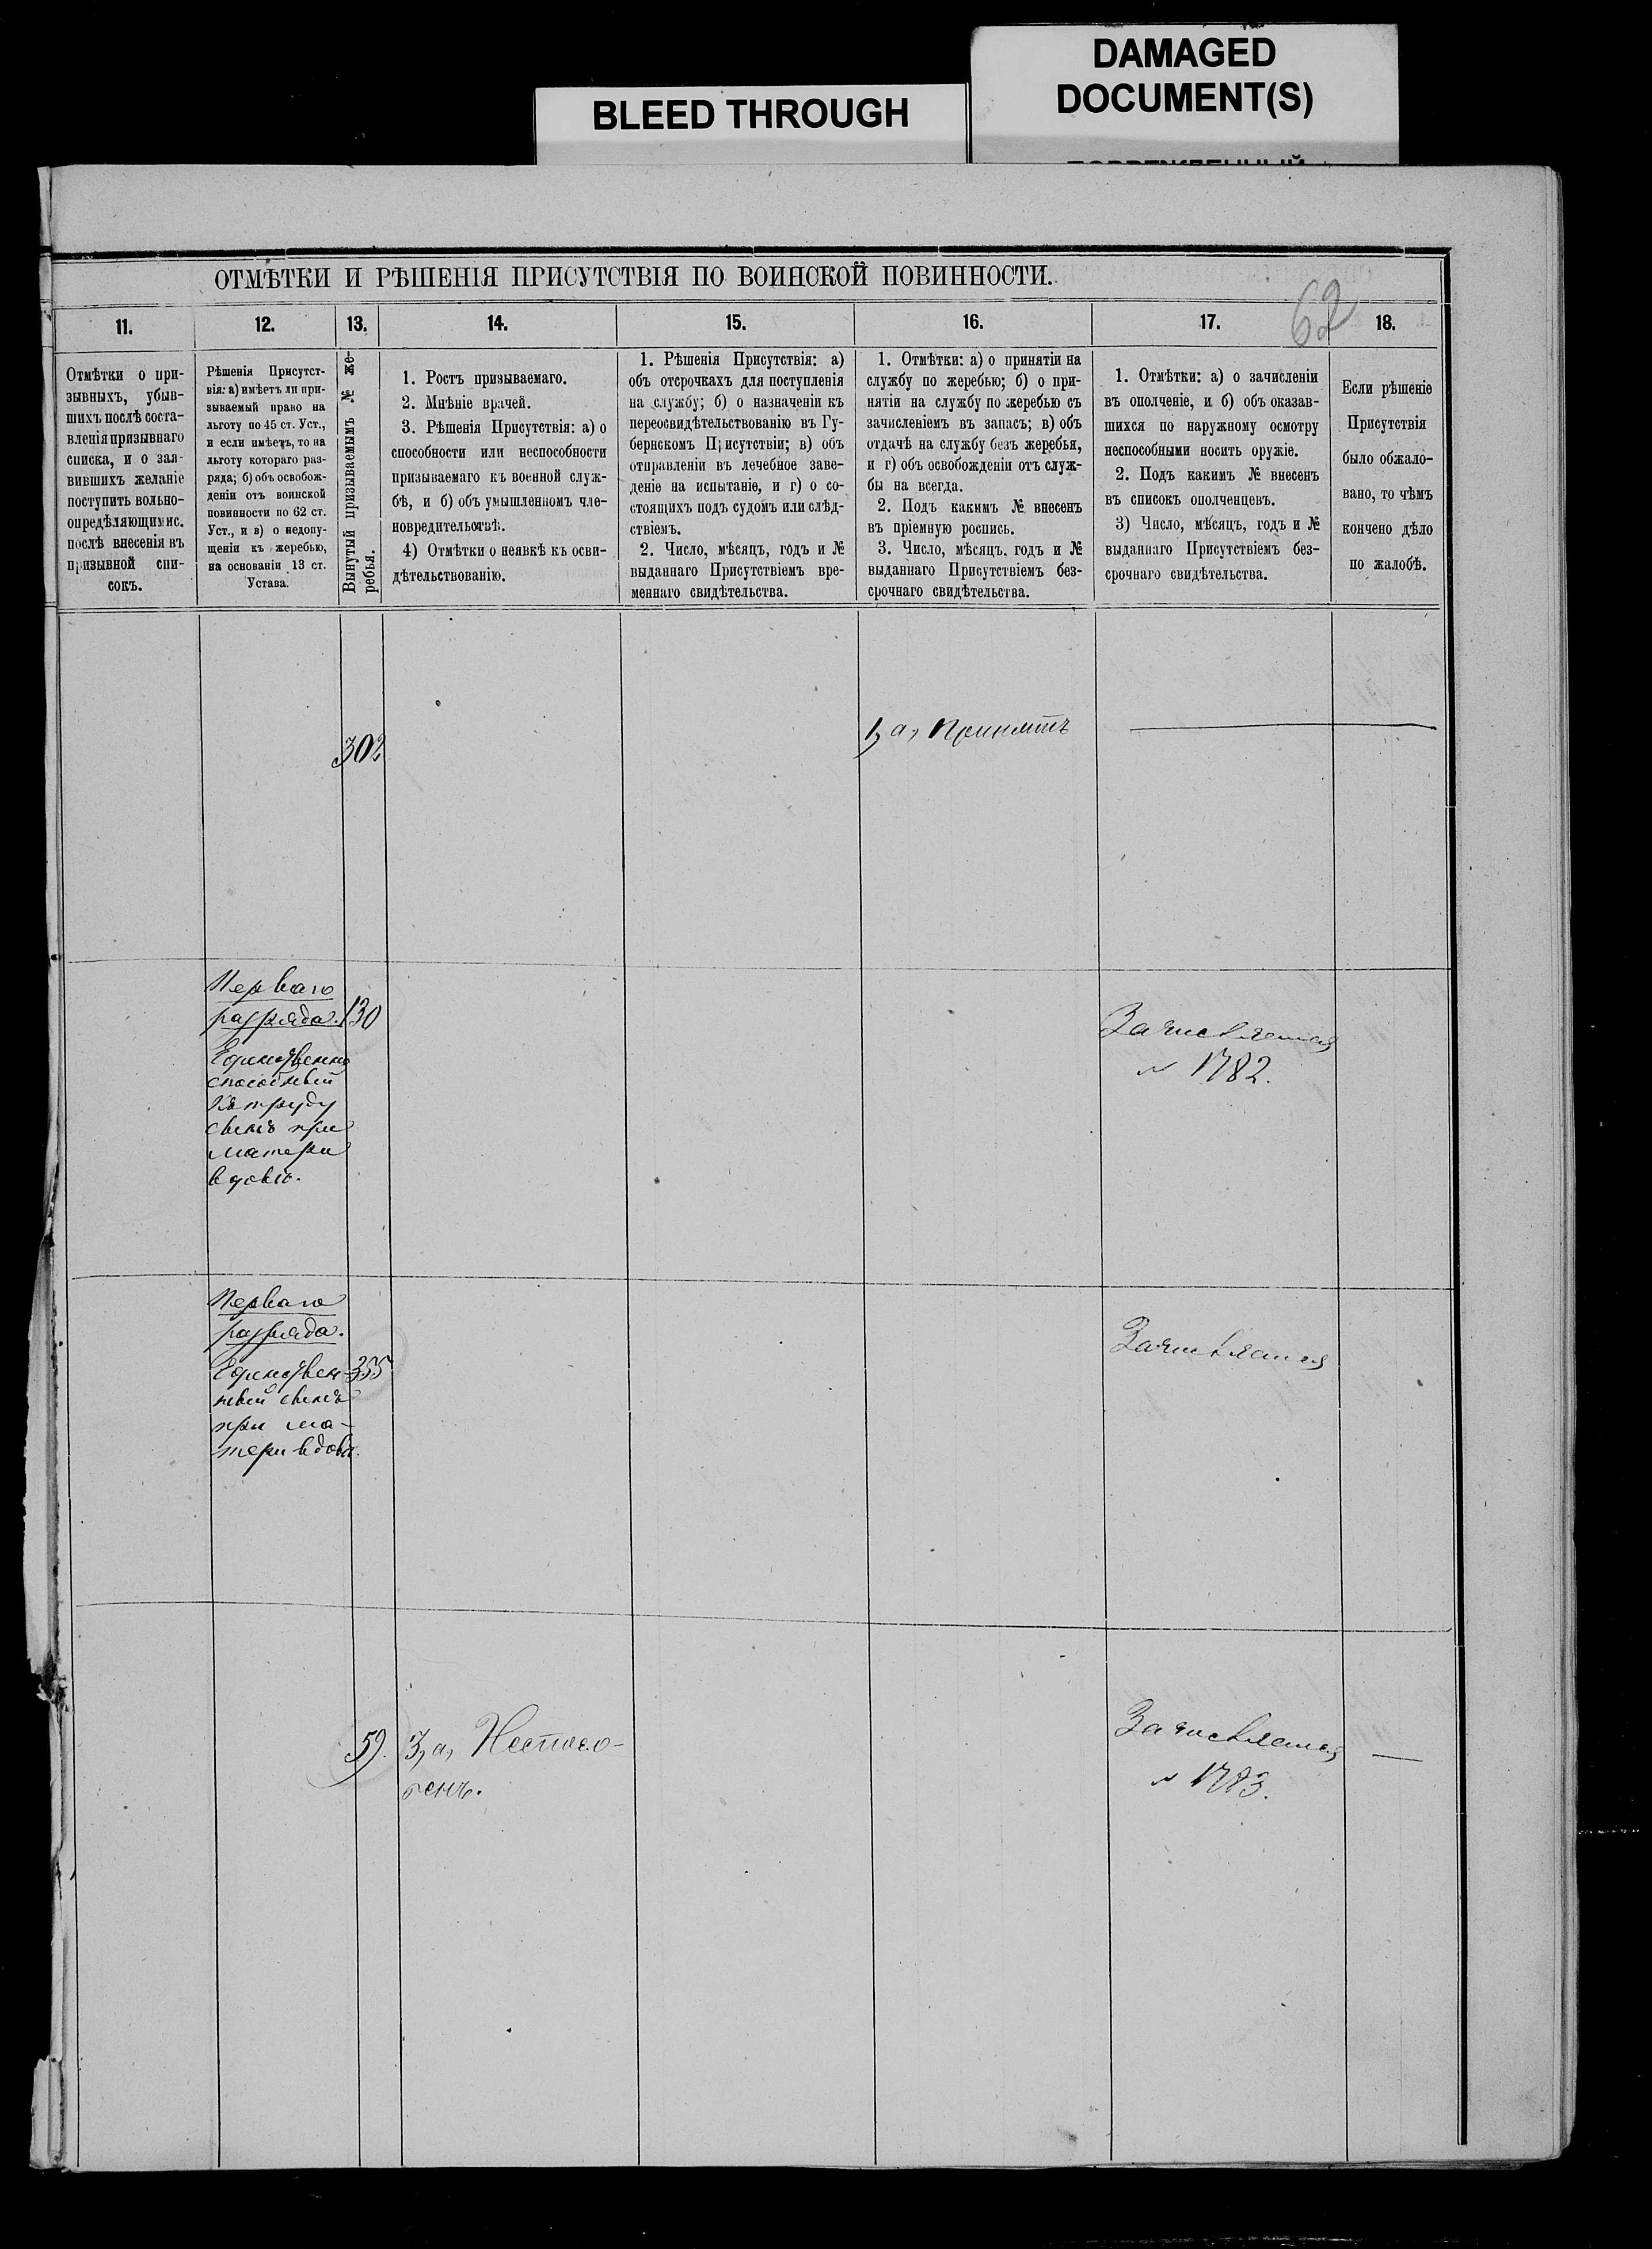 DAMAGED
DOCUMENT(S)
BLEED THROUGH
ОТМѢТКИ И РѢШЕНІЯ ПРИСУТСТВІЯ ПО ВОИНСКОЙ ПОВИННОСТИ.
62
11.
12.
13.
14.
15.
16.
17.
18.
Отмѣтки о при-
зывныхъ, убыв-
шихъ послѣ соста-
вленія призывнаго
списка, и о зая-
вившихъ желаніе
поступить вольно-
опредѣляющимис.
послѣ внесенія въ
призывной спи-
сокъ.
Рѣшенія Присутст-
вія: а) имѣетъ ли при-
зываемый право на
льготу по 45 ст. Уст.,
и если имѣетъ, то на
льготу котораго раз-
ряда; б) объ освобож-
деніи отъ воинской
повинности по 62 ст.
Уст., и в) о недопу-
щеніи къ жеребью,
на основаніи 13 ст.
Устава.
Вынутый призываемымъ № же-
ребья.
1. Ростъ призываемаго.
2. Мнѣніе врачей.
3. Рѣшенія Присутствія: а) о
способности или неспособности
призываемаго къ военной служ-
бѣ, и б) объ умышленномъ чле-
новредительствѣ.
4) Отмѣтки о неявкѣ къ осви-
дѣтельствованію.
1. Рѣшенія Присутствія: а)
объ отсрочкахъ для поступленія
на службу; б) о назначеніи къ
переосвидѣтельствованію въ Гу-
бернскомъ Присутствіи; в) объ
отправленіи въ лечебное заве-
деніе на испытаніе, и г) о со-
стоящихъ подъ судомъ или слѣд-
ствіемъ.
2. Число, мѣсяцъ, годъ и №
выданнаго Присутствіемъ вре-
меннаго свидѣтельства.
1. Отмѣтки: а) о принятіи на
службу по жеребью; б) о при-
нятіи на службу по жеребью съ
зачисленіемъ въ запасъ; в) объ
отдачѣ на службу безъ жеребья,
и г) объ освобожденіи отъ служ-
бы на всегда.
2. Подъ какимъ № внесенъ
въ пріемную роспись.
3. Число, мѣсяцъ, годъ и №
выданнаго Присутствіемъ без-
срочнаго свидѣтельства.
1. Отмѣтки: а) о зачисленіи
въ ополченіе, и б) объ оказав-
шихся по наружному осмотру
неспособными носить оружіе.
2. Подъ какимъ № внесенъ
въ списокъ ополченцевъ.
3) Число, мѣсяцъ, годъ и №
выданнаго Присутствіемъ без-
срочнаго свидѣтельства.
Если рѣшеніе
Присутствія
было обжало-
вано, то чѣмъ
кончено дѣло
по жалобѣ.
302
1, а, Принятъ
Перваго
разряда.
130
Единственно
способный
къ труду
сынъ при
матери
вдовѣ.
Зачисляется
№ 1782.
Перваго
разряда.
Единствен-
355
ный сынъ
при ма-
тери вдовѣ.
Зачисляется
59.
3, а, Неспосо-
бенъ.
Зачисляется
№ 1783.